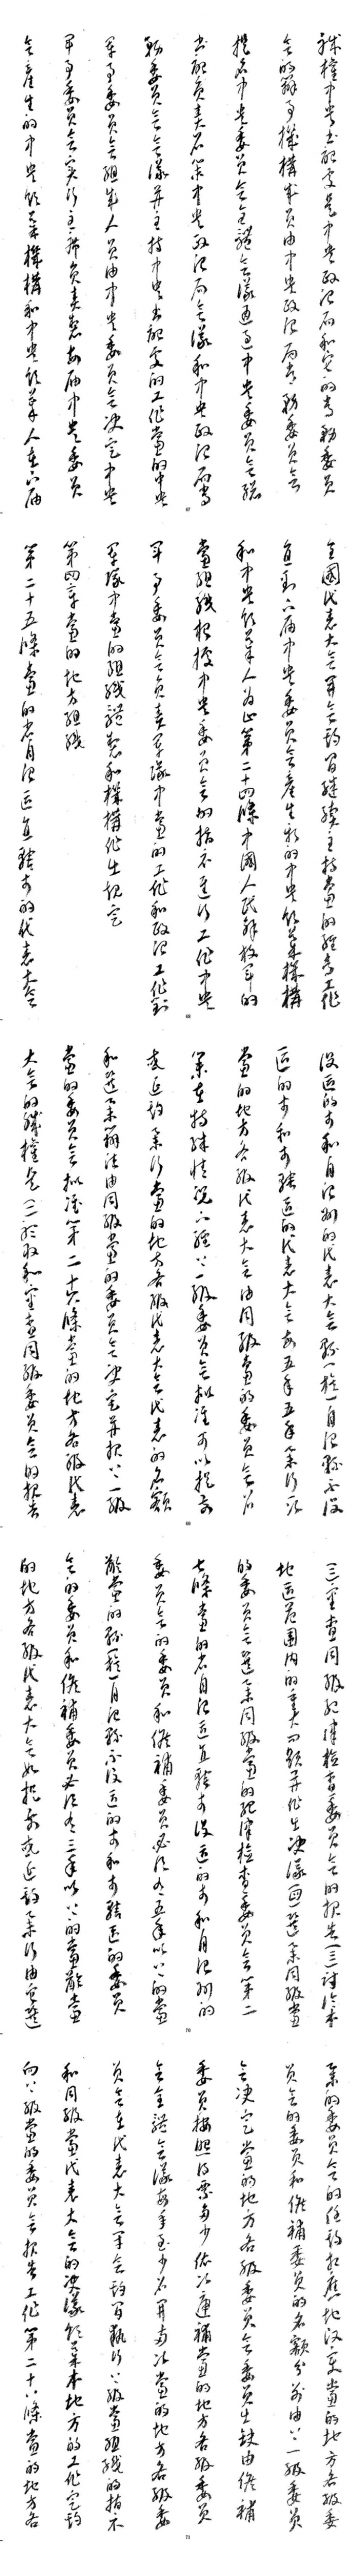 職權中央書記處是中央政治局和它的常務委員
會的辦事機構成員由中央政治局常務委員會
提名中央委員會全體會議通過中央委員會總
書記負責召集中央政治局會議和中央政治局常
務委員會會議并主持中央書記處的工作黨的中央
軍事委員會組成人員由中央委員會決定中央
軍事委員會實行主席負責制每屆中央委員
會產生的中央領導機構和中央領導人在下屆
67
全國代表大會開會期間繼續主持黨的經常工作
直到下屆中央委員會產生新的中央領導機構
和中央領導人為止第二十四條中國人民解放軍的
黨組織根據中央委員會的指示進行工作中央
軍事委員會負責軍隊中黨的工作和政治工作對
軍隊中黨的組織體制和機構作出規定
第四章黨的地方組織
第二十五條黨的省自治區直轄市的代表大會
68
設區的市和自治州的代表大會縣(旗)自治縣不設
區的市和市轄區的代表大會每五年五年舉行一次
黨的地方各級代表大會由同級黨的委員會召
集在特殊情況下經上一級委員會批准可以提前
或延期舉行黨的地方各級代表大會代表的名額
和選舉辦法由同級黨的委員會決定并報上一級
黨的委員會批准第二十六條黨的地方各級代表
大會的職權是(一)聽取和審查同級委員會的報告
69
(二)審查同級紀律檢查委員會的報告(三)討論本
地區範圍內的重大問題并作出決議(四)選舉同級黨
的委員會選舉同級黨的紀律檢查委員會第二
十七條黨的省自治區直轄市設區的市和自治州的
委員會的委員和候補委員必須有五年以上的黨
齡黨的縣(旗)自治縣不設區的市和市轄區的委員
會的委員和候補委員必須有三年以上的黨齡黨
的地方各級代表大會如提前或延期舉行由它選
70
舉的委員會的任期相應地改變黨的地方各級委
員會的委員和候補委員的名額分別由上一級委員
會決定黨的地方各級委員會委員出缺由候補
委員按照得票多少依次遞補黨的地方各級委員
會全體會議每年至少召開兩次黨的地方各級委
員會在代表大會閉會期間執行上級黨組織的指示
和同級黨代表大會的決議領導本地方的工作定期
向上級黨的委員會報告工作第二十八條黨的地方各
71